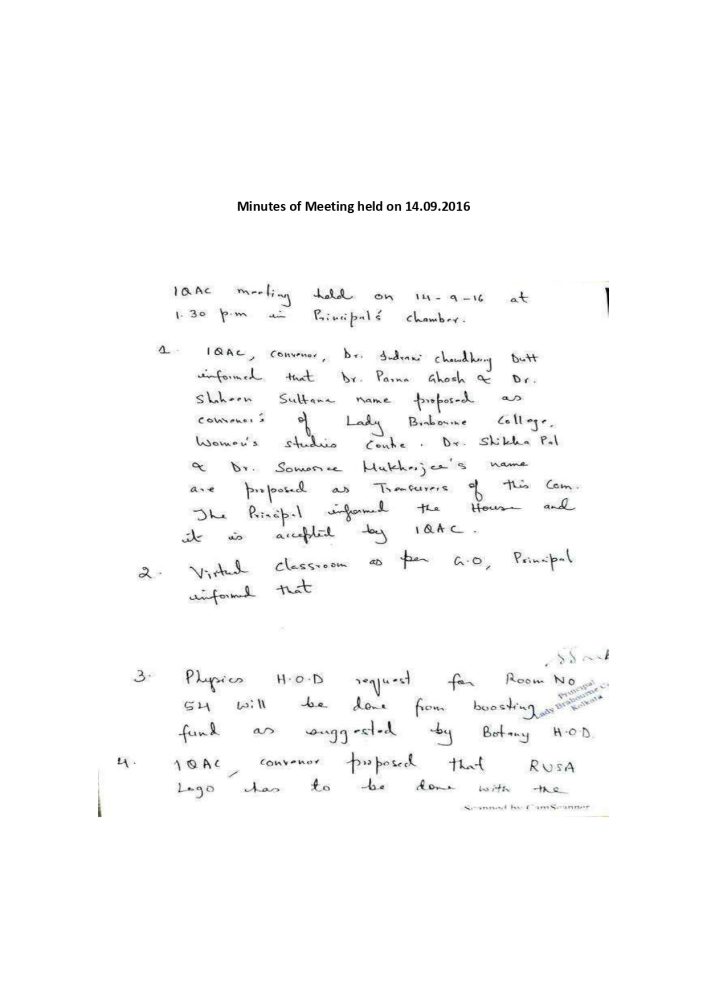 Minutes of Meeting held on 14.09.2016
IQAC meeting held on 14-9-16 at
1.30 p.m in Principal's chamber.
1. IQAC, convenor, Dr. Indrani Choudhury Dutt
informed that Dr. Parna Ghosh & Dr.
Shaheen Sultana name proposed as
convenor's of Lady Brabourne College,
Women's studies Centre. Dr. Shikha Pal
& Dr. Somasree Mukherjee's name
are proposed as Treasurers of this Com.
The Principal informed the House and
it is accepted by IQAC.
2. Virtual classroom as per G.O, Principal
informed that
3. Physics H.O.D request for Room No
54 will be done from boosting
fund as suggested by Botany H.O.D.
4. IQAC, convenor proposed that RUSA
Logo has to be done with the
Principal
Lady Brabourne
Kolkata
Scanned by CamScanner